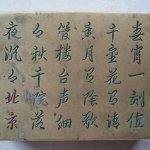 春宵一刻值
千金花有清
香月有陰歌
管楼台声细
々秋千院落
夜沉々北京